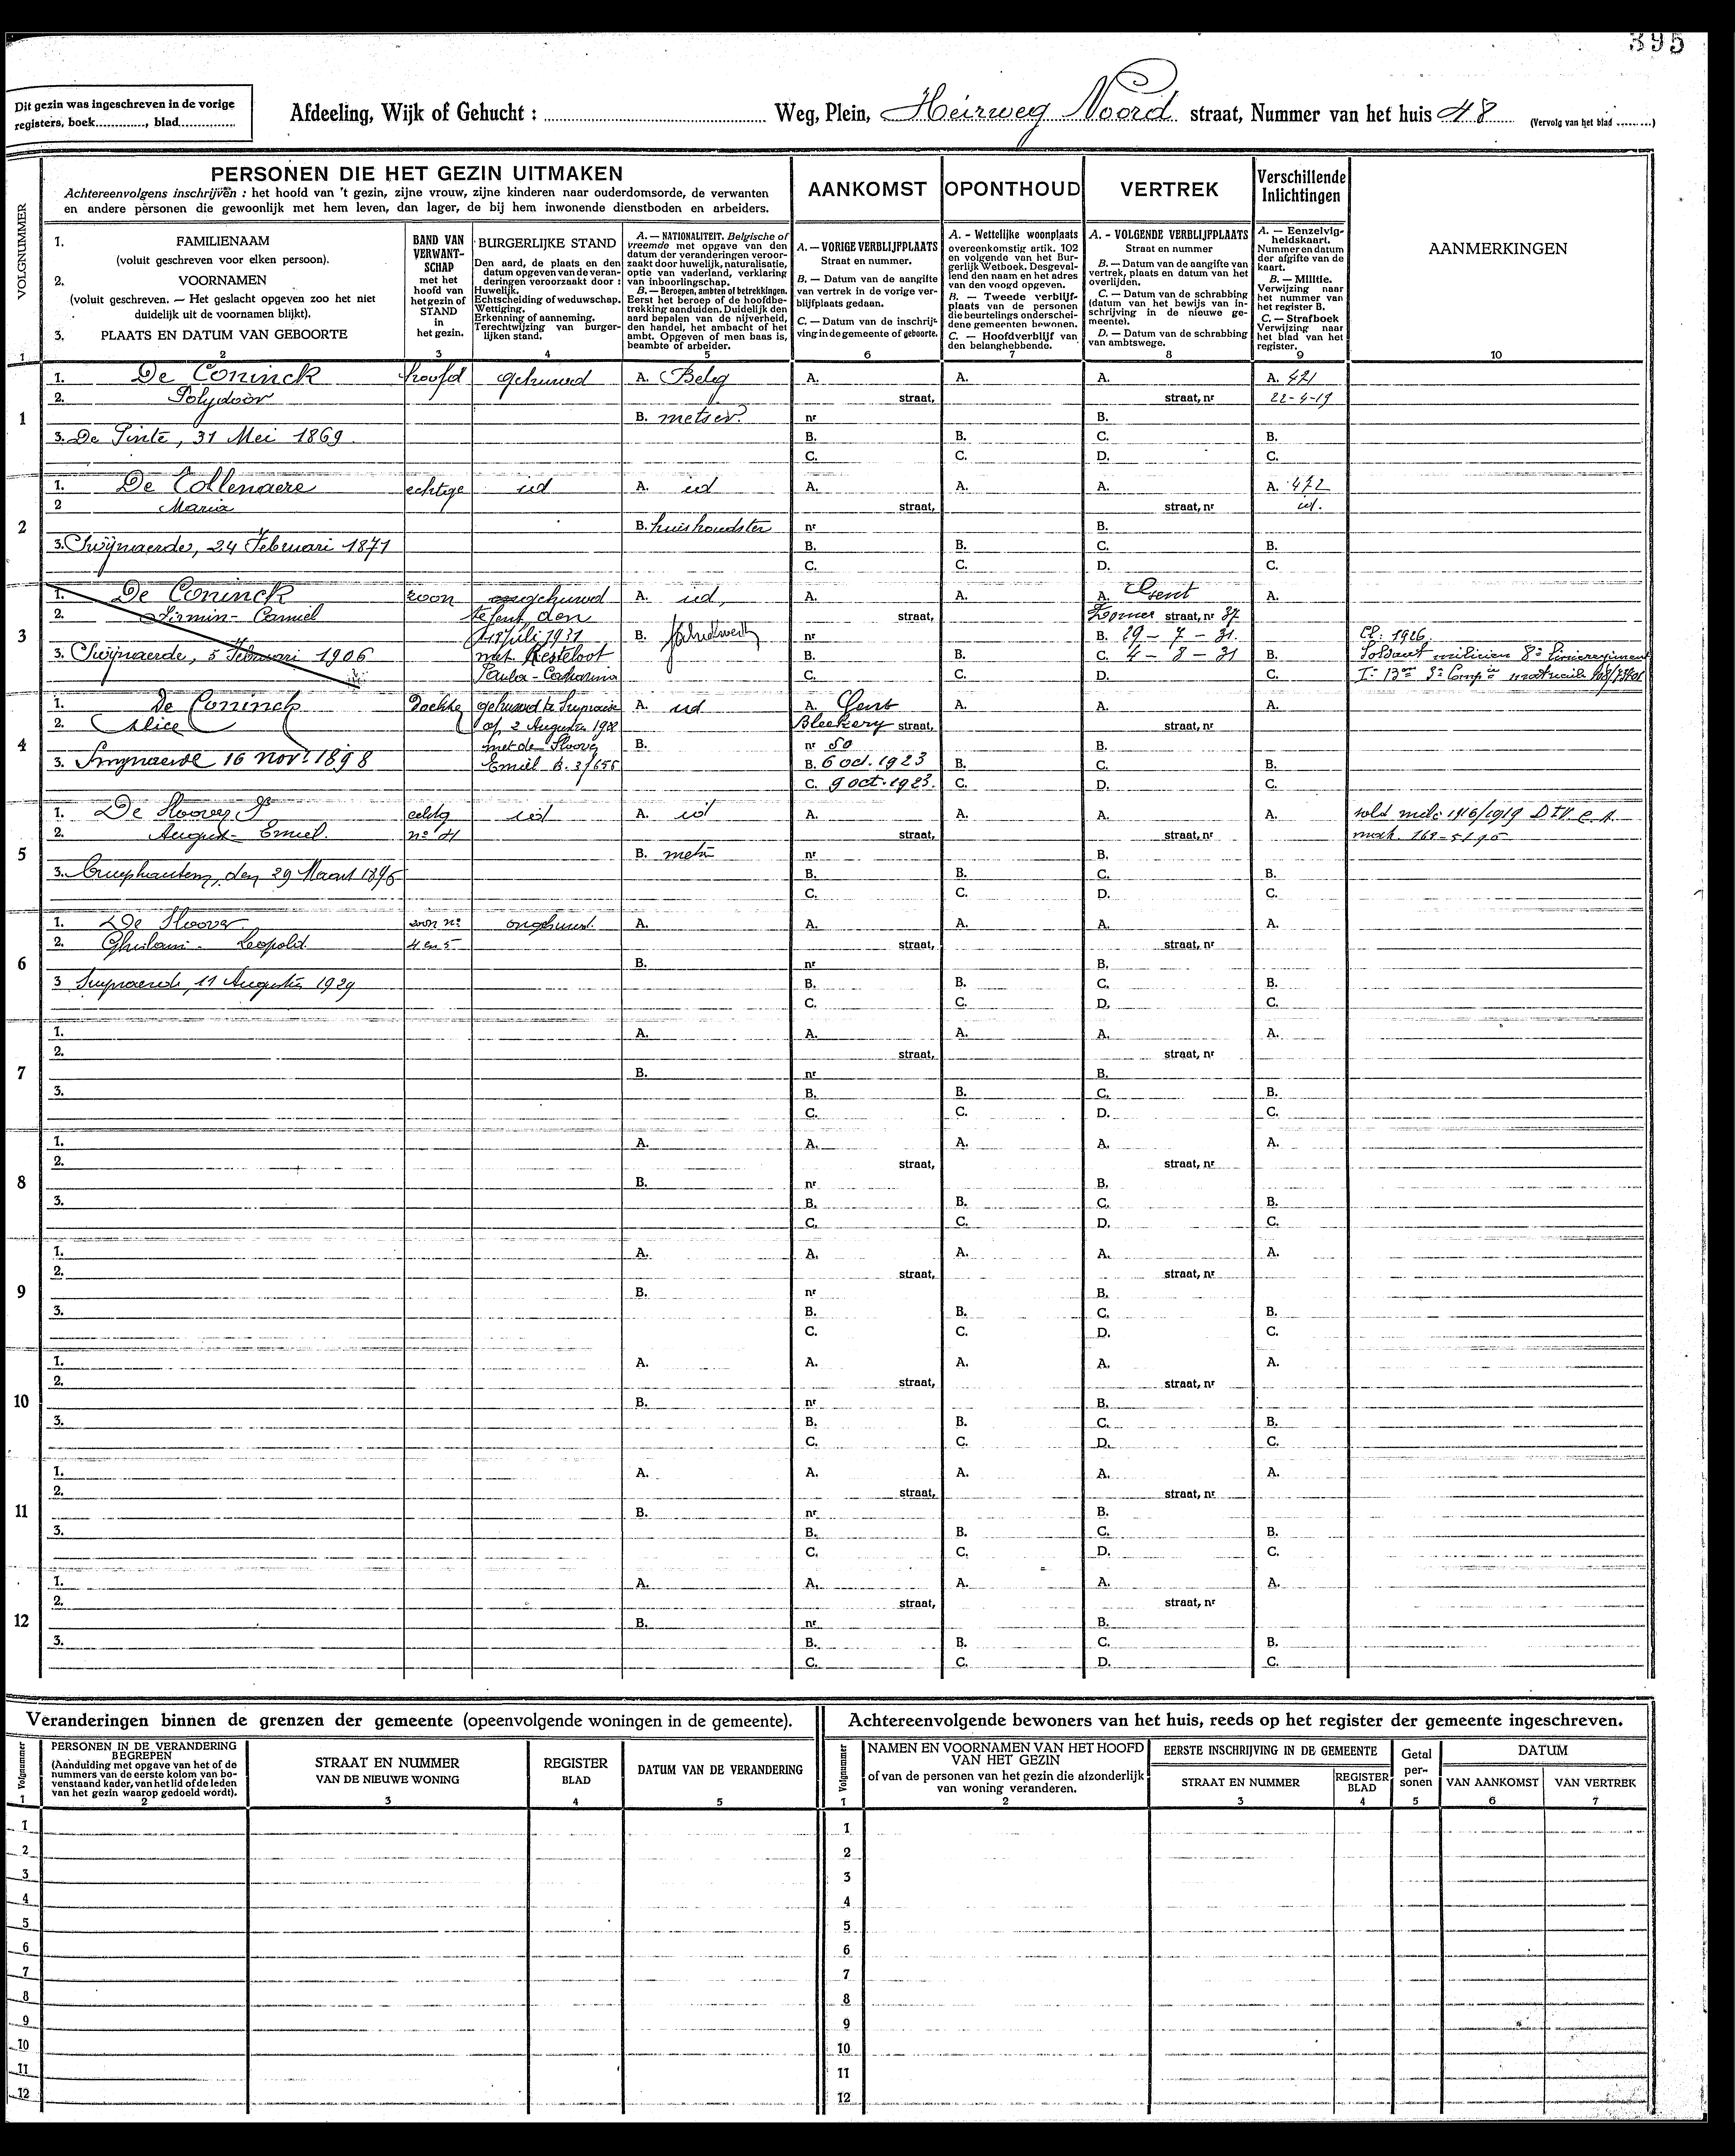 395
Dit gezin was ingeschreven in de vorige
registers, boek............, blad..............
Afdeeling, Wijk of Gehucht : ........ Weg, Plein, Heirweg Noord straat, Nummer van het huis 48 (Vervolg van het blad .........)
VOLGNUMMER
1
PERSONEN DIE HET GEZIN UITMAKEN
Achtereenvolgens inschrijven : het hoofd van 't gezin, zijne vrouw, zijne kinderen naar ouderdomsorde, de verwanten
en andere personen die gewoonlijk met hem leven, dan lager, de bij hem inwonende dienstboden en arbeiders.
1. FAMILIENAAM
(voluit geschreven voor elken persoon).
2. VOORNAMEN
(voluit geschreven. — Het geslacht opgeven zoo het niet
duidelijk uit de voornamen blijkt).
3. PLAATS EN DATUM VAN GEBOORTE
2
BAND VAN
VERWANT-
SCHAP
met het
hoofd van
het gezin of
STAND
in
het gezin.
3
BURGERLIJKE STAND
Den aard, de plaats en den
datum opgeven van de veran-
deringen veroorzaakt door :
Huwelijk.
Echtscheiding of weduwschap.
Wettiging.
Erkenning of aanneming.
Terechtwijzing van burger-
lijken stand.
4
A. — NATIONALITEIT. Belgische of
vreemde met opgave van den
datum der veranderingen veroor-
zaakt door huwelijk, naturalisatie,
optie van vaderland, verklaring
van inboorlingschap.
B. — Beroepen, ambten of betrekkingen.
Eerst het beroep of de hoofdbe-
trekking aanduiden. Duidelijk den
aard bepalen van de nijverheid,
den handel, het ambacht of het
ambt. Opgeven of men baas is,
beambte of arbeider.
5
AANKOMST
A. — VORIGE VERBLIJFPLAATS
Straat en nummer.
B. — Datum van de aangifte
van vertrek in de vorige ver-
blijfplaats gedaan.
C. — Datum van de inschrij-
ving in de gemeente of geboorte.
6
OPONTHOUD
A. - Wettelijke woonplaats
overeenkomstig artik. 102
en volgende van het Bur-
gerlijk Wetboek. Desgeval-
lend den naam en het adres
van den voogd opgeven.
B. — Tweede verblijf-
plaats van de personen
die beurtelings onderschei-
dene gemeenten bewonen.
C. — Hoofdverblijf van
den belanghebbende.
7
VERTREK
A. - VOLGENDE VERBLIJFPLAATS
Straat en nummer
B. — Datum van de aangifte van
vertrek, plaats en datum van het
overlijden.
C. — Datum van de schrabbing
(datum van het bewijs van in-
schrijving in de nieuwe ge-
meente).
D. — Datum van de schrabbing
van ambtswege.
8
Verschillende
Inlichtingen
A. — Eenzelvig-
heidskaart.
Nummer en datum
der afgifte van de
kaart.
B. — Militie.
Verwijzing naar
het nummer van
het register B.
C. — Strafboek
Verwijzing naar
het blad van het
register.
9
AANMERKINGEN
10
1
1. De Coninck hoofd gehuwd A. Belg A. A. A. A. 471
2. Polydoor straat, straat, nr 22-4-19
B. metser nr B.
3. De Pinte, 31 Mei 1869. B. B. C. B.
C. C. D. C.
2
1. De Collenaere echtge id A. id A. A. A. A. 472
2 Maria straat, straat, nr id.
B. huishoudster nr B.
3. Swijnaerde, 24 Februari 1871 B. B. C. B.
C. C. D. C.
3
1. De Coninck zoon ongehuwd A. id, A. A. A. Gent A.
2. Firmin - Camiel te Gent den straat, straat, nr 37
Juli 1931 B. nr B. 29 - 7 - 31. Cl: 1926
3. Swijnaerde, 5 Februari 1906 met Resteloot B. B. C. 4 - 8 - 31 B. Soldaat milicien 8e Linieregiment
Paula - Catharina C. C. D. C.
4
1. De Coninck gehuwd te A. id A. Gent A. A. A.
2. Alice op 2 Augustus Bleekery straat, straat, nr
met de Hoovg B. nr 50 B.
3. 16 Nov. 1898 Emiel B. 3/655 B. 6 oct. 1923 B. C. B.
C. 9 oct. 1923. C. D. C.
5
1. De Hoovg id A. id A. A. A. A. sold milc 1916/1919
2. August - Emiel n° 4 straat, straat, nr
B. nr B.
3. Cruyshautem, den 29 Maart 1896 B. B. C. B.
C. C. D. C.
6
1. De Hoover zoon n° ongehuwd A. A. A. A. A.
2. Ghislain - Leopold 4 en 5 straat, straat, nr
B. nr B.
3 11 Augustus 1929 B. B. C. B.
C. C. D. C.
7
1. A. A. A. A. A.
2. straat, straat, nr
B. nr B.
3. B. B. C. B.
C. C. D. C.
8
1. A. A. A. A. A.
2. straat, straat, nr
B. nr B.
3. B. B. C. B.
C. C. D. C.
9
1. A. A. A. A. A.
2. straat, straat, nr
B. nr B.
3. B. B. C. B.
C. C. D. C.
10
1. A. A. A. A. A.
2. straat, straat, nr
B. nr B.
3. B. B. C. B.
C. C. D. C.
11
1. A. A. A. A. A.
2. straat, straat, nr
B. nr B.
3. B. B. C. B.
C. C. D. C.
12
1. A. A. A. A. A.
2. straat, straat, nr
B. nr B.
3. B. B. C. B.
C. C. D. C.
Veranderingen binnen de grenzen der gemeente (opeenvolgende woningen in de gemeente).
Volgnummer
1
PERSONEN IN DE VERANDERING
BEGREPEN
(Aanduiding met opgave van het of de
nummers van de eerste kolom van bo-
venstaand kader, van het lid of de leden
van het gezin waarop gedoeld wordt).
2
STRAAT EN NUMMER
VAN DE NIEUWE WONING
3
REGISTER
BLAD
4
DATUM VAN DE VERANDERING
5
1
2
3
4
5
6
7
8
9
10
11
12
Achtereenvolgende bewoners van het huis, reeds op het register der gemeente ingeschreven.
Volgnummer
1
NAMEN EN VOORNAMEN VAN HET HOOFD
VAN HET GEZIN
of van de personen van het gezin die afzonderlijk
van woning veranderen.
2
EERSTE INSCHRIJVING IN DE GEMEENTE
STRAAT EN NUMMER
3
REGISTER
BLAD
4
Getal
per-
sonen
5
DATUM
VAN AANKOMST
6
VAN VERTREK
7
1
2
3
4
5
6
7
8
9
10
11
12